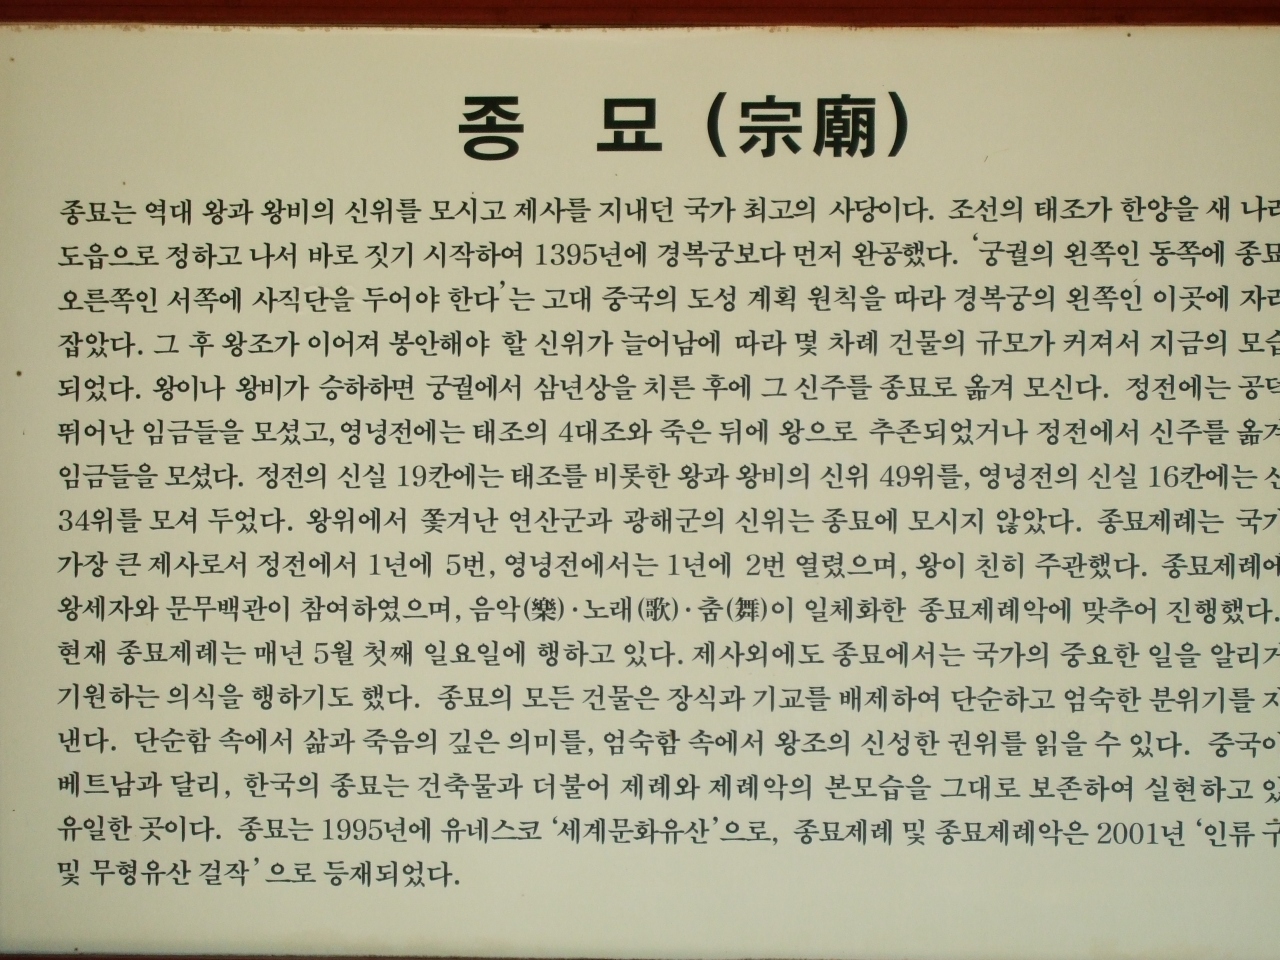 종 묘 (宗廟)
종묘는 역대 왕과 왕비의 신위를 모시고 제사를 지내던 국가 최고의 사당이다. 조선의 태조가 한양을 새
도읍으로 정하고 나서 바로 짓기 시작하여 1395년에 경복궁보다 먼저 완공했다. ‘궁궐의 왼쪽인 동쪽에
오른쪽인 서쪽에 사직단을 두어야 한다’는 고대 중국의 도성 계획 원칙을 따라 경복궁의 왼쪽인 이곳에
잡았다. 그 후 왕조가 이어져 봉안해야 할 신위가 늘어남에 따라 몇 차례 건물의 규모가 커져서 지금의
되었다. 왕이나 왕비가 승하하면 궁궐에서 삼년상을 치른 후에 그 신주를 종묘로 옮겨 모신다. 정전에는
뛰어난 임금들을 모셨고, 영녕전에는 태조의 4대조와 죽은 뒤에 왕으로 추존되었거나 정전에서 신주를
임금들을 모셨다. 정전의 신실 19칸에는 태조를 비롯한 왕과 왕비의 신위 49위를, 영녕전의 신실 16칸에는
34위를 모셔 두었다. 왕위에서 쫓겨난 연산군과 광해군의 신위는 종묘에 모시지 않았다. 종묘제례는
가장 큰 제사로서 정전에서 1년에 5번, 영녕전에서는 1년에 2번 열렸으며, 왕이 친히 주관했다.
왕세자와 문무백관이 참여하였으며, 음악(樂)·노래(歌)·춤(舞)이 일체화한 종묘제례악에 맞추어 진행했다.
현재 종묘제례는 매년 5월 첫째 일요일에 행하고 있다. 제사외에도 종묘에서는 국가의 중요한 일을
기원하는 의식을 행하기도 했다. 종묘의 모든 건물은 장식과 기교를 배제하여 단순하고 엄숙한 분위기를
낸다. 단순함 속에서 삶과 죽음의 깊은 의미를, 엄숙함 속에서 왕조의 신성한 권위를 읽을 수 있다.
베트남과 달리, 한국의 종묘는 건축물과 더불어 제례와 제례악의 본모습을 그대로 보존하여 실현하고
유일한 곳이다. 종묘는 1995년에 유네스코 ‘세계문화유산’으로, 종묘제례 및 종묘제례악은 2001년 ‘인류
및 무형유산 걸작’으로 등재되었다.